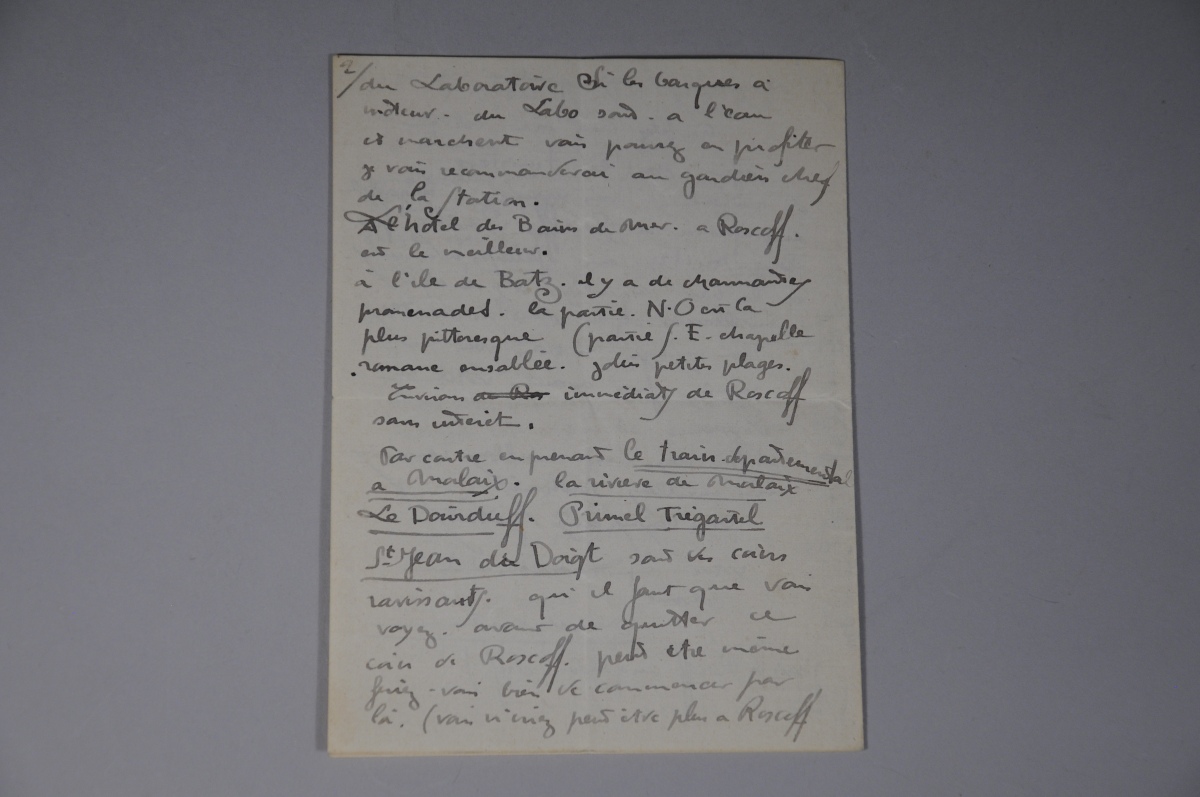 2/ du Laboratoire Si les barques à
moteur. du Labo sont. a l'eau
et marchent vous pourrez en profiter
je vous recommanderai au gardien chef
de la Station.
L'hôtel des Bains de Mer. a Roscoff.
est le meilleur.
à l'ile de Batz. il y a de charmantes
promenades. la partie. N.O est la
plus pittoresque (partie S.E. chapelle
romane ensablée. jolies petites plages.
Environs de Ros immédiats de Roscoff
sans intérêt.
Par contre en prenant le train départemental
a Morlaix. la rivière de Morlaix
Le Dourduff. Primel Trégastel
St Jean du Doigt sont des coins
ravissants. qu'il faut que vous
voyez. avant de quitter ce
coin de Roscoff. peut être même
feriez-vous bien de commencer par
là. (vous n'iriez peut être plus a Roscoff